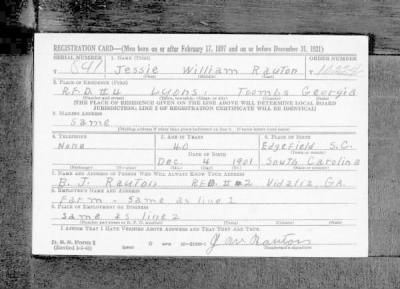 REGISTRATION CARD—(Men born on or after February 17, 1897 and on or before December 31, 1921)
SERIAL NUMBER 1. NAME (Print) ORDER NUMBER
641 Jessie William Rauton
(First) (Middle) (Last)
2. PLACE OF RESIDENCE (Print)
R.F.D #4 Lyons, Toombs Georgia
(Number and street) (Town, township, village, or city) (County) (State)
[THE PLACE OF RESIDENCE GIVEN ON THE LINE ABOVE WILL DETERMINE LOCAL BOARD
JURISDICTION; LINE 2 OF REGISTRATION CERTIFICATE WILL BE IDENTICAL]
3. MAILING ADDRESS
Same
[Mailing address if other than place indicated on line 2. If same insert word same]
4. TELEPHONE 5. AGE IN YEARS 6. PLACE OF BIRTH
None 40 Edgefield S.C.
DATE OF BIRTH (Town or county)
Dec. 4 1901 South Carolina
(Exchange) (Number) (Mo.) (Day) (Yr.) (State or country)
7. NAME AND ADDRESS OF PERSON WHO WILL ALWAYS KNOW YOUR ADDRESS
B. J. Rauton R.F.D. #2 Vidalia, GA.
8. EMPLOYER'S NAME AND ADDRESS
Farm - same as line 1
9. PLACE OF EMPLOYMENT OR BUSINESS
Same as line 2
(Number and street or R. F. D. number) (Town) (County) (State)
I AFFIRM THAT I HAVE VERIFIED ABOVE ANSWERS AND THAT THEY ARE TRUE.
D. S. S. Form 1
(Revised 1-1-42) (over) Rauton
(Registrant's signature)